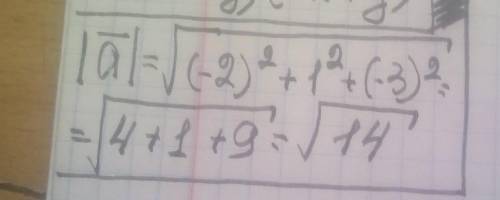 |a̅|=√((-2)²+1²+(-3)²)=
=√(4+1+9)=√14